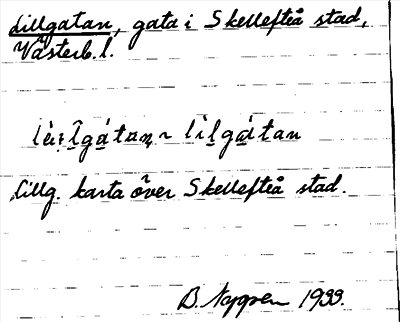 Lillgatan, gata i Skellefteå stad,
Västerb. l.
lìlgátan
Lillg. karta över Skellefteå stad.
B. Nygren 1933.